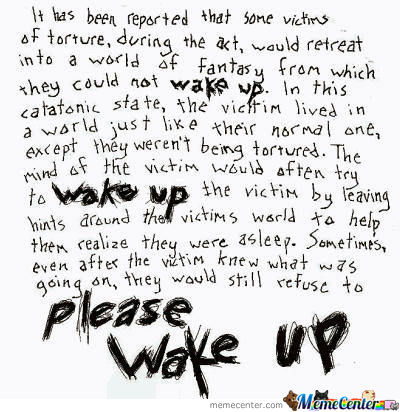 It has been reported that some victims
of torture, during the act, would retreat
into a world of fantasy from which
they could not wake up. In this
catatonic state, the victim lived in
a world just like their normal one,
except they weren't being tortured. The
mind of the victim would often try
to wake up the victim by leaving
hints around the victims world to help
them realize they were asleep. Sometimes,
even after the victim knew what was
going on, they would still refuse to
please
wake up
memecenter.com MemeCenter